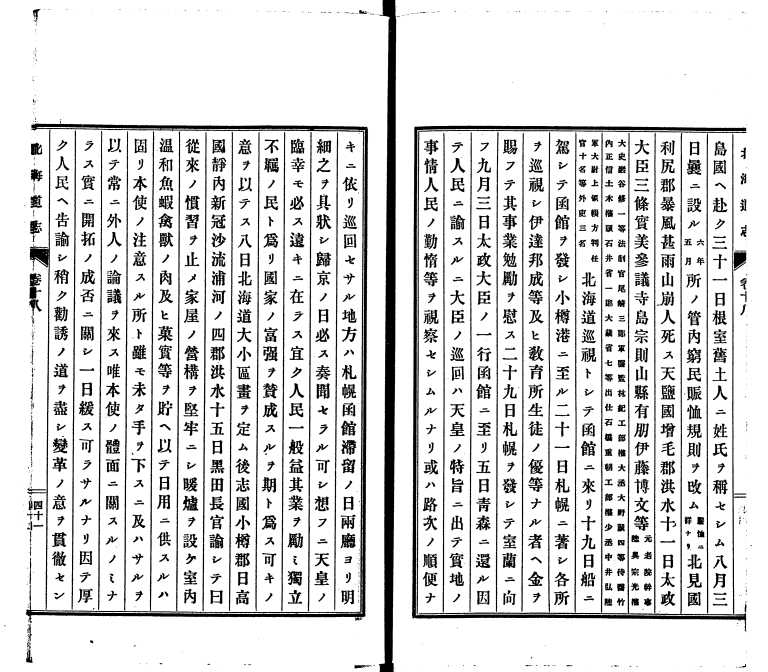 北海道志 卷十八
島國ヘ赴ク三十一日根室舊土人ニ姓氏ヲ稱セシム八月三
日曩ニ設ル六年五月所ノ管內窮民賑恤規則ヲ改ム賑恤ニ詳ナリ北見國
利尻郡暴風甚雨山崩人死ス天鹽國增毛郡洪水十一日太政
大臣三條實美參議寺島宗則山縣有朋伊藤博文等元老院幹事陸奧宗光權
大史巖谷修一等法制官尾崎三郎軍醫監林紀工部權大丞大野誠四等侍醫竹
內正信土木權頭石井省一郎大藏省七等出仕石橋重朝工部權少丞中井弘陸
軍大尉上領賴方判任官十名等外吏三名北海道巡視トシテ函館ニ來リ十九日船ニ
駕シテ函館ヲ發シ小樽港ニ至ル二十一日札幌ニ著シ各所
ヲ巡視シ伊達邦成等及ヒ敎育所生徒ノ優等ナル者ヘ金ヲ
賜フテ其事業勉勵ヲ慰ス二十九日札幌ヲ發シテ室蘭ニ向
フ九月三日太政大臣ノ一行函館ニ至リ五日靑森ニ還ル因
テ人民ニ諭スルニ大臣ノ巡回ハ天皇ノ特旨ニ出テ實地ノ
事情人民ノ勤惰等ヲ視察セシムルナリ或ハ路次ノ順便ナ
キニ依リ巡回セサル地方ハ札幌函館滯留ノ日兩廳ヨリ明
細之ヲ具狀シ歸京ノ日必ス奏聞セラル可シ想フニ天皇ノ
臨幸モ必ス遠キニ在ラス宜ク人民一般益其業ヲ勵ミ獨立
不羈ノ民ト爲リ國家ノ富强ヲ賛成スルヲ期ト爲ス可キノ
意ヲ以テス八日北海道大小區畫ヲ定ム後志國小樽郡日高
國靜內新冠沙流浦河ノ四郡洪水十五日黑田長官諭シテ曰
從來ノ慣習ヲ止メ家屋ノ營構ヲ堅牢ニシ暖爐ヲ設ケ室內
溫和魚蝦禽獸ノ肉及ヒ菓實等ヲ貯ヘ以テ日用ニ供スルハ
固リ本使ノ注意スル所ト雖モ未タ手ヲ下スニ及ハサルヲ
以テ常ニ外人ノ論議ヲ來ス唯本使ノ體面ニ關スルノミナ
ラス實ニ開拓ノ成否ニ關シ一日緩ス可ラサルナリ因テ厚
ク人民ヘ告諭シ稍ク勸誘ノ道ヲ盡シ變革ノ意ヲ貫徹セン
北海道志 卷十八 四十一